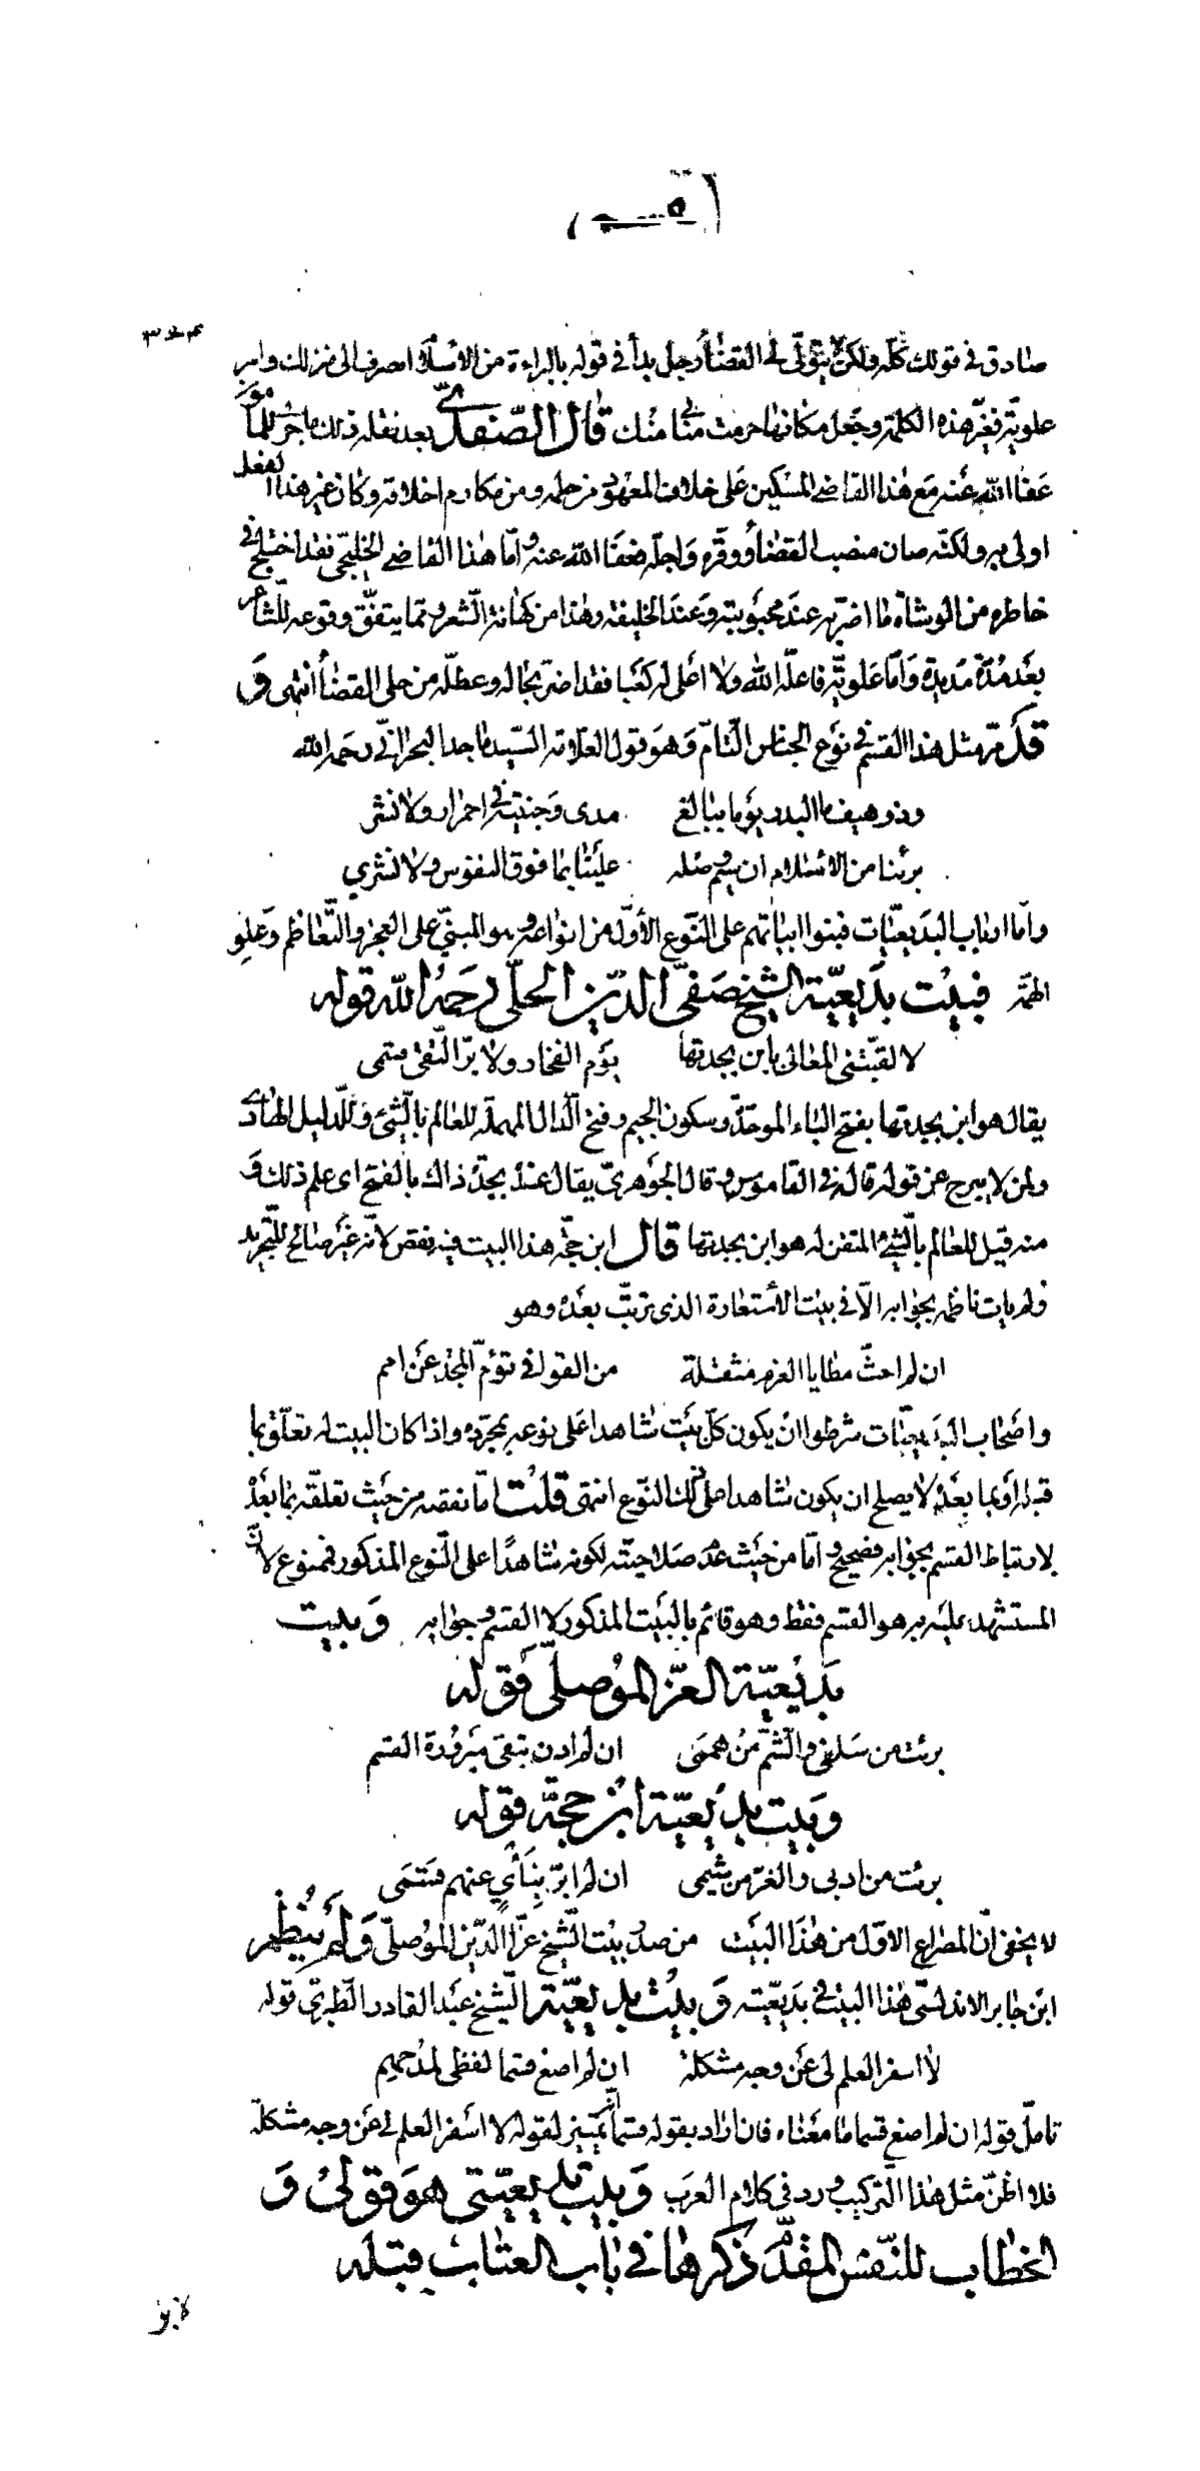 القسم
صادق في قولك كلّه ولكن لا يتولّى لي القضاء رجل بدأ في قوله بالبراءة من الاسلام انصرف الى منزلك وامر
علويّة فغيّر هذه الكلمة وجعل مكانها حرمت مناي منك قال الصّفدي بعد نقله ذلك ما جرى للمأمون
عفا الله عنه مع هذا القاضي المسكين على خلاف المعهود من حلمه ومن مكارم اخلاقه وكان غير هذا الفعل
اولى به ولكنّه صان منصب القضاء ووقّره واجلّه فعفا الله عنه وامّا هذا القاضي الخليجي فقد اختلج في
خاطره من الوشاة ما اضرّ به عند محبوبته وعند الخليفة وهذا من كهانة الشّعر وممّا يتفّق وقوعه للشّاعر
بعد مدّة مديدة وامّا علويّة فا علّه الله ولا اعلى له كعبا فقد اضرّ بحاله وعطله من حلى القضاء انتهى و
قد مرّ مثل هذا القسم في نوع الجناس التّام وهو قول العلاّمة السّيد ماجد البحراني رحمه الله
وذو هيف ما البدر يوما ببالغ مدى وجنتيه في احمرار ولا نشر
برئنا من الاسلام ان سيم وصله علينا بما فوق النفوس ولا نشري
وامّا ارباب البديعيّات فبنوا ابياتهم على النّوع الأوّل من انواعه وهو المبنيّ على الفخر والتّعاظم وعلو
الهمّة فبيت بديعيّة الشيخ صفيّ الدّين الحلّي رحمه الله قوله
لا لقبتني المعالي بابن بجدتها يوم الفخار ولا برّ التّقى قسمي
يقال هو ابن بجدتها بفتح الباء الموحدّة وسكون الجيم وفتح الدّال المهملة للعالم بالشّيء وللدليل الهادي
ولمن لا يبرح عن قوله قاله في القاموس وقال الجوهريّ يقال عنده بجدة ذاك بالفتح اى علم ذلك و
منه قيل للعالم بالشّيء المتقن له هو ابن بجدتها قال ابن حجّة هذا البيت فيه نقص لانّه غير صالح للتّجريد
ولم يات ناظمه بجوابه الاّ في بيت الاستعارة الذى ترتّب بعده وهو
ان لم احثّ مطايا العزم مثقلة من القوافي تؤمّ المجد عن امم
واصحاب البديعيّات شرطوا ان يكون كلّ بيت شاهدا على نوعه بمجرّده واذا كان البيت له تعلّق بما
قبله أو بما بعده لا يصلح ان يكون شاهدا على ذلك النّوع انتهى قلت امّا نقصه من حيث تعلقّه بما بعده
لارتباط القسم بجوابه فصحيح وامّا من حيث عدم صلاحيته لكونه شاهدًا على النّوع المذكور فممنوع لانّ
المستشهد عليه به هو القسم فقط وهو قائم بالبيت المذكور لا القسم وجوابه وبيت
بديعيّة العزّ الموصليّ فقوله
برئت من سلفي والشّمّ من هممي ان لم ادن بتقى مبرورة القسم
وبيت بديعيّة ابن حجّة قوله
برئت من ادبى والغرّ من شيمى ان لم ابرّ بِنَأي عنهم قسمى
لا يخفى انّ المصراع الاوّل من هذا البيت من صدر بيت الشّيخ عزّ الدّين الموصليّ ولم ينظم
ابن جابر الاندلسّى هذا البيت في بديعيّته وبيت بديعيّة الشّيخ عبد القادر الطّبرّي قوله
لا اسفر العلم لى عن وجه مشكلة ان لم اصغ قسما لفظى لمدحهم
تامّل قوله ان لم اصغ قسما ما معناه فان اراد بقوله قسما انّه تمييز لقوله لا اسفر العلم لي عن وجه مشكلة
فلا اظنّ مثل هذا التّركيب ورد في كلام العرب وبيت بديعيّتى هو قولى و
الخطاب للنّفس المقدّم ذكرها في باب العتاب قبله
لا برّ